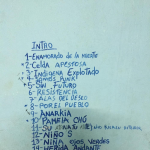 INTRO
1-ENAMORADO DE LA MUERTE
2-CELDA APESTOSA
3-INDIGENA EXPLOTADO
4-SOMOS PUNK!
5-SIN FUTURO
6-RESISTENCIA
7-ALAS DEL DESEO
8-POR EL PUEBLO
9-ANARKIA
10-PANKHA CHÚ
11-SU
12-NIÑO S
13-NIÑA OJOS VERDES
14-MERIDA ANDANTE